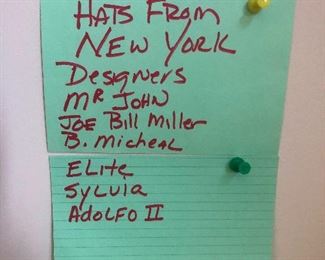 HATS FROM
NEW YORK
Designers
MR JOHN
JOE Bill Miller
B. Micheal
ELite
Sylvia
Adolfo II